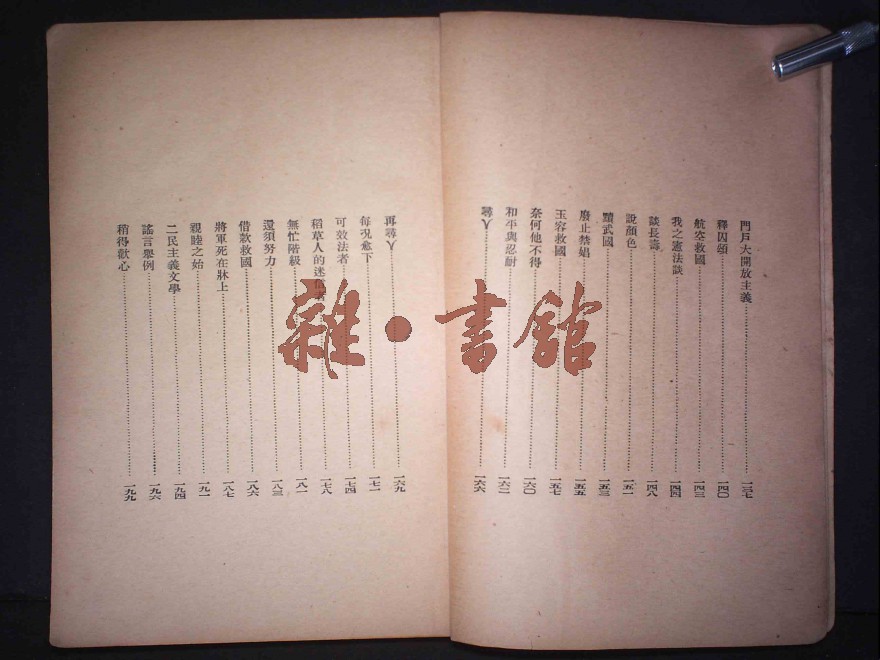 門戶大開放主義……一三七
釋囚頌……一四〇
航空救國……一四三
我之憲法談……一四四
談長壽……一四八
說顏色……一五一
黷武國……一五三
廢止禁娼……一五五
玉容救國……一五七
奈何他不得……一六〇
和平與忍耐……一六二
尋人……一六六
再尋人……一六九
每況愈下……一七一
可效法者……一七四
稻草人的迷信……一七八
無忙階級……一八一
還須努力……一八三
借款救國……一八六
將軍死在牀上……一八七
親睦之始……一九一
二民主義文學……一九四
謠言舉例……一九六
稍得歡心……一九九
雜•書館